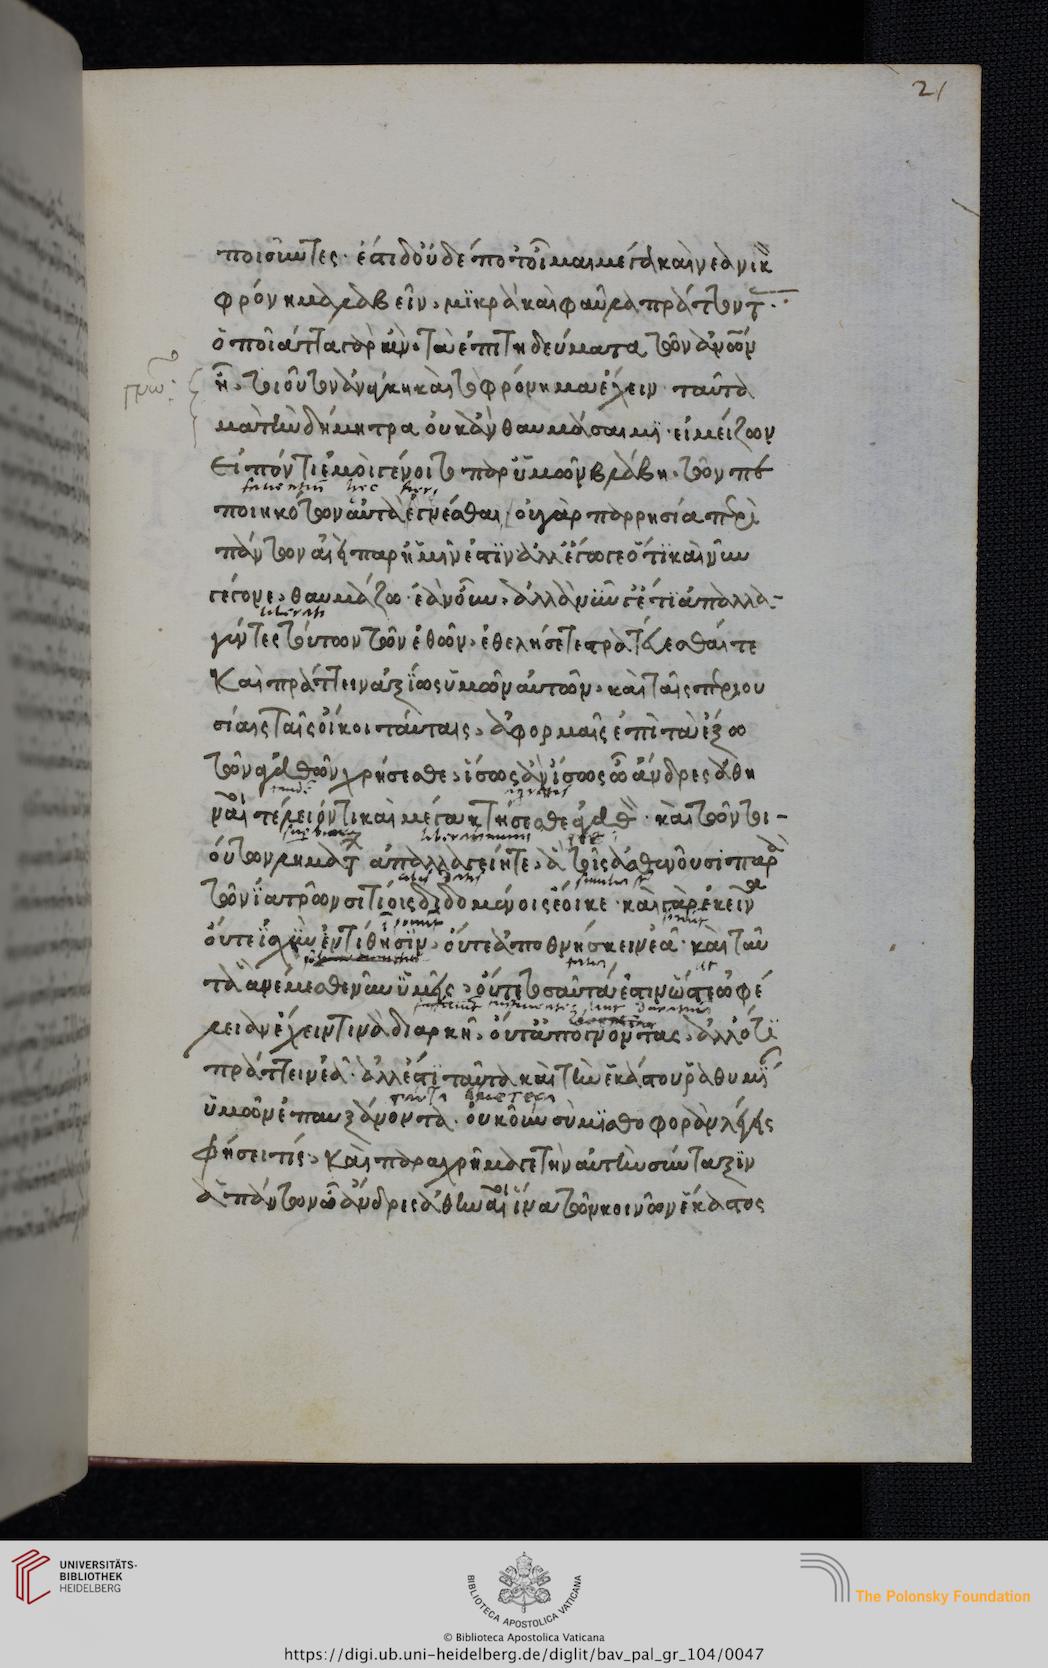 21
ποιοῦντες· ἔστι δ' οὐδέποτ' οἶμαι μέγα καὶ νεανικὸν
φρόνημα λαβεῖν, μικρὰ καὶ φαῦλα πράττοντας·
ὁποῖ' ἄττα γὰρ ἂν τὰ ἐπιτηδεύματα τῶν ἀνθρώπων
ᾖ, τοιοῦτον ἀνάγκη καὶ τὸ φρόνημα ἔχειν· ταῦτα
μὰ τὴν δήμητρα οὐκ ἂν θαυμάσαιμι εἰ μείζων
εἰπόντι ἐμοὶ γένοιτο παρ' ὑμῶν βλάβη τῶν πε
ποιηκότων αὐτὰ γενέσθαι· οὐ γὰρ παρρησία περὶ
πάντων ἀεὶ παρ' ὑμῖν ἐστὶν ἀλλ' ἔγωγε ὅτι καὶ νῦν
γέγονε, θαυμάζω· ἐὰν οὖν, ἀλλὰ νῦν γ' ἔτι ἀπαλλα-
γέντες τούτων τῶν ἐθῶν, ἐθελήσετε στρατεύεσθαί τε
καὶ πράττειν ἀξίως ὑμῶν αὐτῶν, καὶ ταῖς περιου
σίαις ταῖς οἴκοι ταύταις, ἀφορμαῖς ἐπὶ τὰ ἔξω
τῶν ἀγαθῶν χρήσεσθε, ἴσως ἂν ἴσως ὦ ἄνδρες ἀθη
ναῖοι τέλειόν τι καὶ μέγα κτήσεσθε ἀγαθὸν· καὶ τῶν τοι-
ούτων λημμάτων ἀπαλλαγείητε, ἃ τοῖς ἀσθενοῦσι παρὰ
τῶν ἰατρῶν σιτίοις διδομένοις ἔοικε· καὶ γὰρ ἐκεῖνα
οὔτε ἰσχὺν ἐντίθησιν, οὔτε ἀποθνήσκειν ἐᾷ· καὶ ταῦ
τα ἃ νέμεσθε νῦν ὑμεῖς, οὔτε τοσαῦτά ἐστιν ὥστε ὠφέ
λειαν ἔχειν τινὰ διαρκῆ, οὔτ' ἀπογνόντας, ἄλλό τι
πράττειν ἐᾷ· ἀλλ' ἔστι ταῦτα καὶ τὴν ἑκάστου ῥαθυμίαν
ὑμῶν ἐπαυξάνοντα· οὐκοῦν σὺ μισθοφορὰν λέγεις
φήσει τίς, καὶ παραχρῆμά γε τὴν αὐτὴν σύνταξιν
ἁπάντων ὦ ἄνδρες ἀθηναῖοι ἵνα τῶν κοινῶν ἕκαστος
UNIVERSITÄTS-
BIBLIOTHEK
HEIDELBERG
BIBLIOTECA APOSTOLICA VATICANA
The Polonsky Foundation
© Biblioteca Apostolica Vaticana
https://digi.ub.uni-heidelberg.de/diglit/bav_pal_gr_104/0047